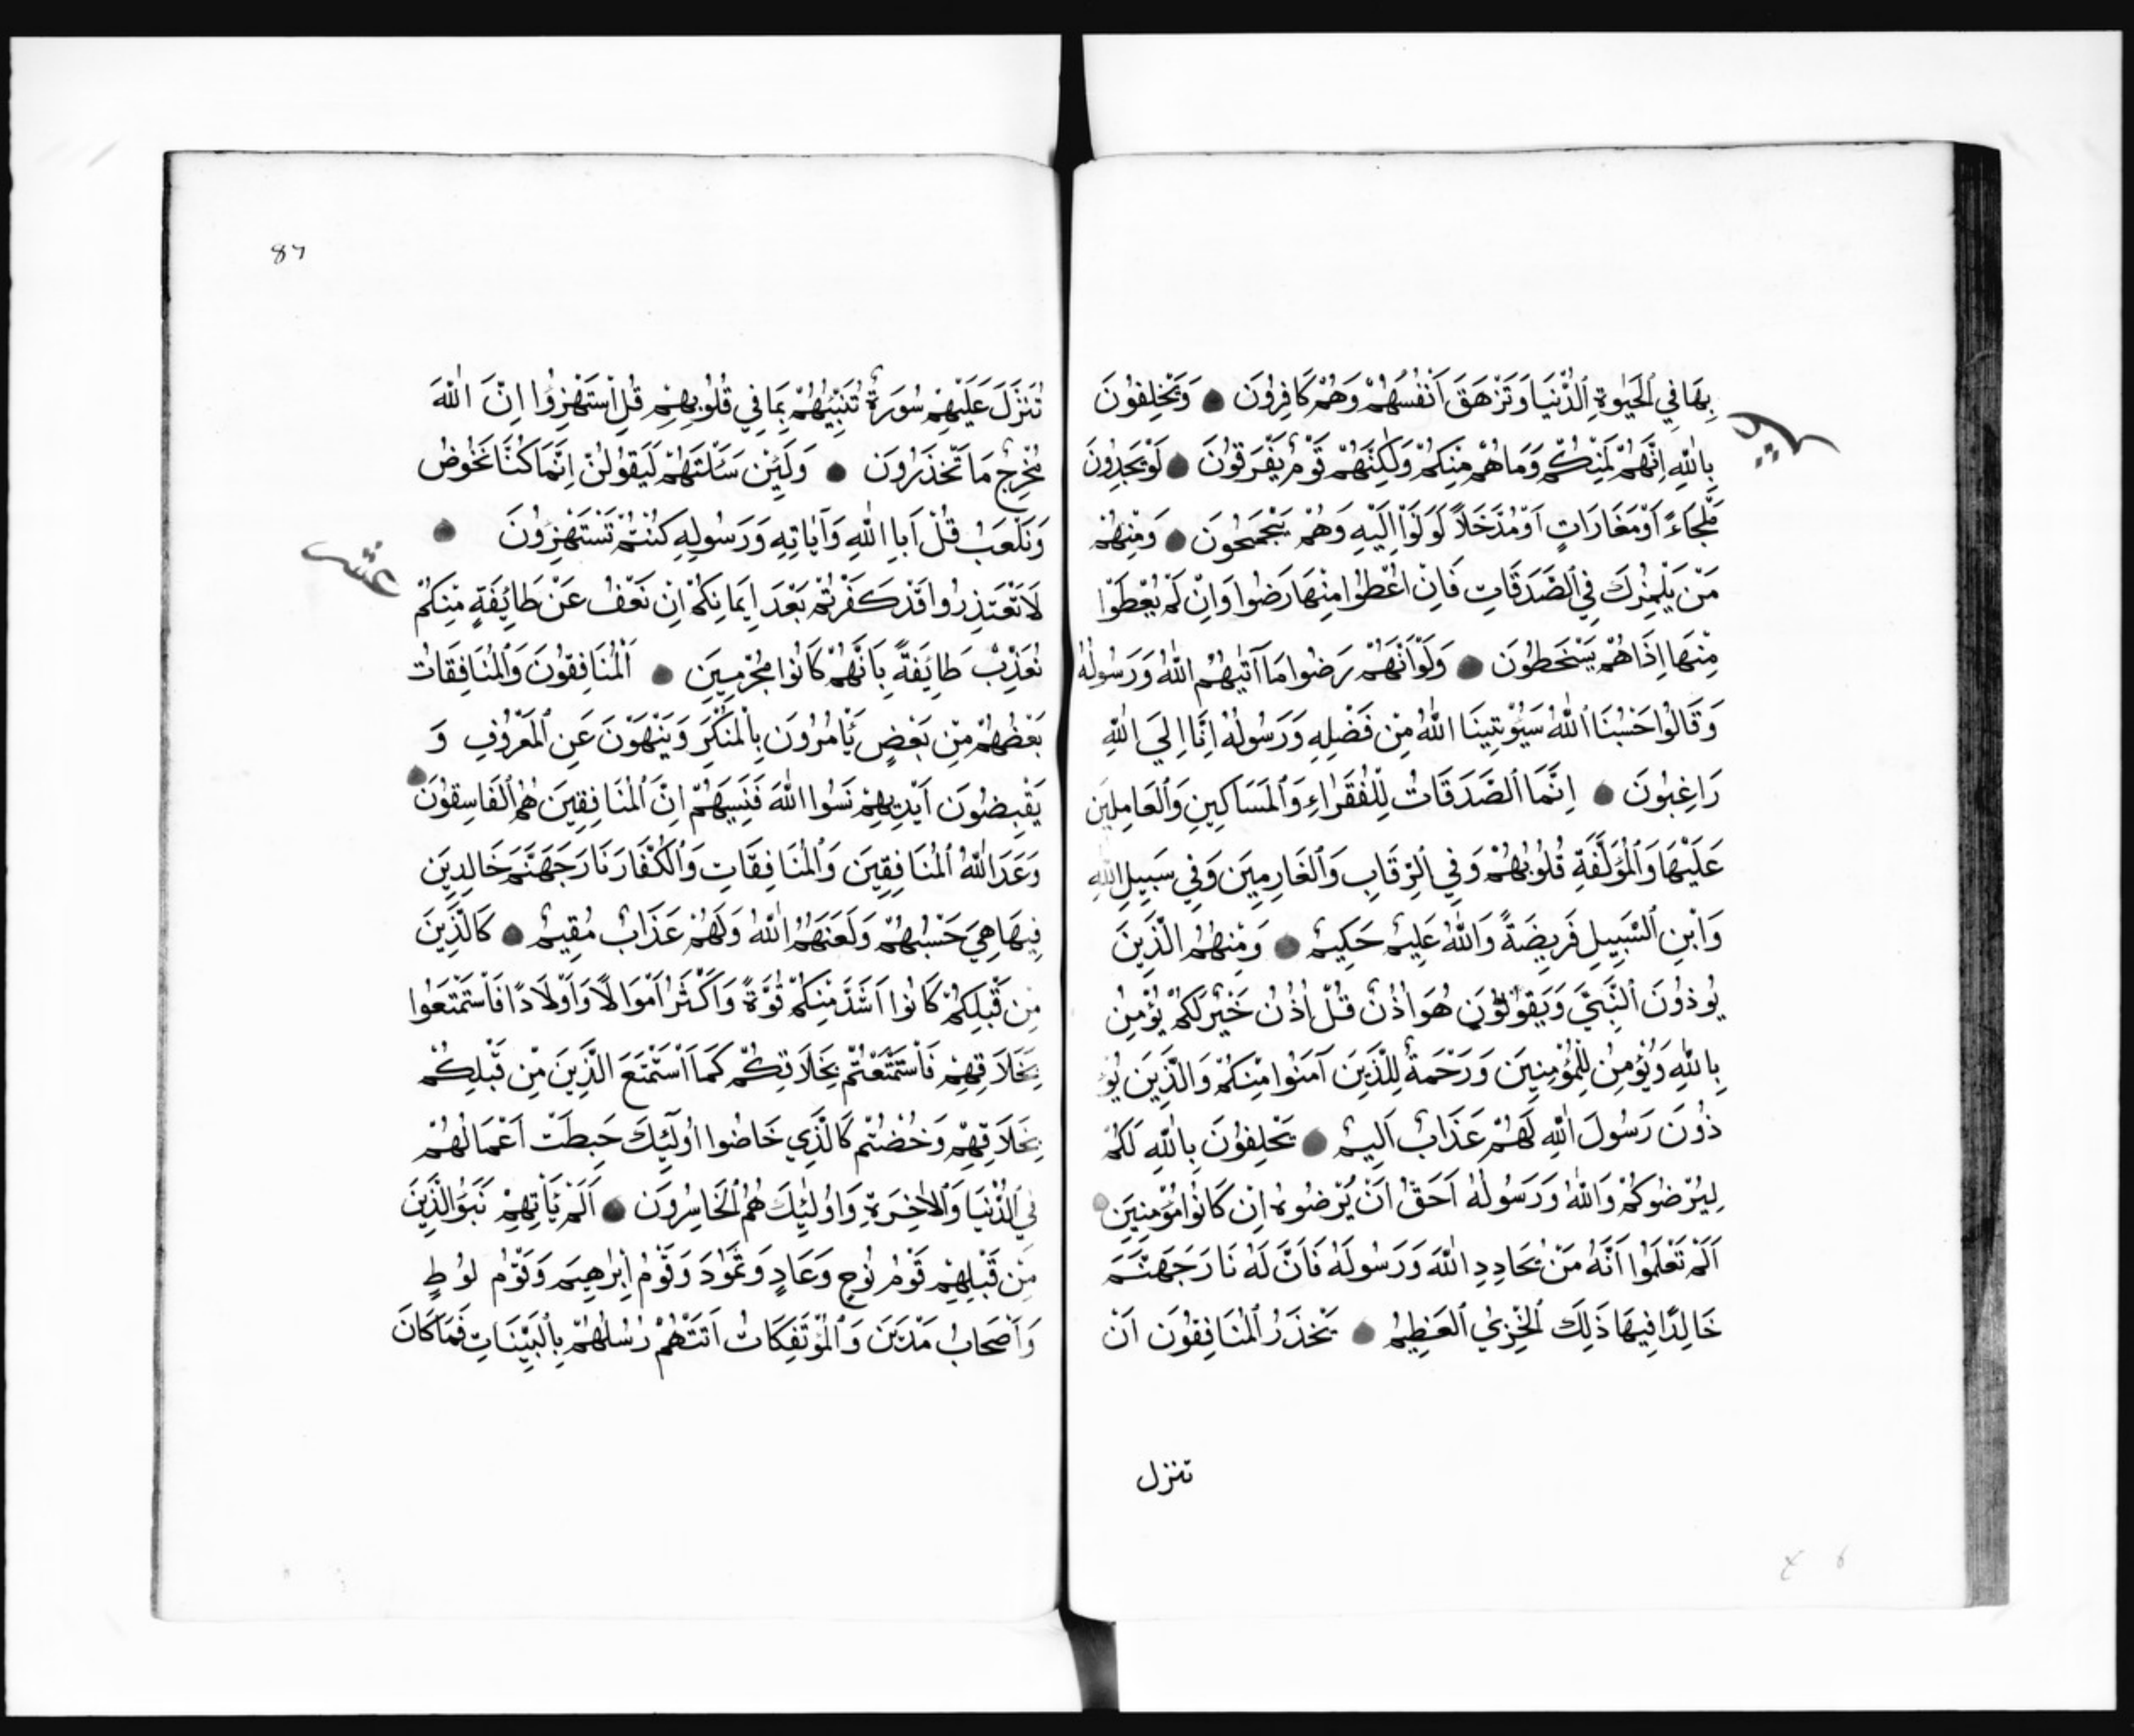 بِهَا فِي الْحَيٰوةِ الدُّنْيَا وَتَزْهَقَ اَنْفُسُهُمْ وَهُمْ كَافِرُونَ وَيَحْلِفُونَ
بِاللّٰهِ اِنَّهُمْ لَمِنْكُمْ وَمَا هُمْ مِنْكُمْ وَلٰكِنَّهُمْ قَوْمٌ يَفْرَقُونَ لَوْ يَجِدُونَ
مَلْجَاءً اَوْ مَغَارَاتٍ اَوْ مُدَّخَلاً لَوَلَّوْا اِلَيْهِ وَهُمْ يَجْمَحُونَ وَمِنْهُمْ
مَنْ يَلْمِزُكَ فِي الصَّدَقَاتِ فَاِنْ اُعْطُوا مِنْهَا رَضُوا وَاِنْ لَمْ يُعْطَوْا
مِنْهَا اِذَا هُمْ يَسْخَطُونَ وَلَوْ اَنَّهُمْ رَضُوا مَا آتٰيهُمُ اللّٰهُ وَرَسُولُهُ
وَقَالُوا حَسْبُنَا اللّٰهُ سَيُؤْتِينَا اللّٰهُ مِنْ فَضْلِهِ وَرَسُولُهُ اِنَّا اِلَي اللّٰهِ
رَاغِبُونَ اِنَّمَا الصَّدَقَاتُ لِلْفُقَرَاءِ وَالْمَسَاكِينِ وَالْعَامِلِينَ
عَلَيْهَا وَالْمُؤَلَّفَةِ قُلُوبُهُمْ وَفِي الرِّقَابِ وَالْغَارِمِينَ وَفِي سَبِيلِ اللّٰهِ
وَابْنِ السَّبِيلِ فَرِيضَةً وَاللّٰهُ عَلِيمٌ حَكِيمٌ وَمِنْهُمُ الَّذِينَ
يُوذُونَ النَّبِيَّ وَيَقُولُونَ هُوَ اُذُنٌ قُلْ اُذُنُ خَيْرٍ لَكُمْ يُؤْمِنُ
بِاللّٰهِ وَيُؤْمِنُ لِلْمُؤْمِنِينَ وَرَحْمَةٌ لِلَّذِينَ آمَنُوا مِنْكُمْ وَالَّذِينَ يُو
ذُونَ رَسُولَ اللّٰهِ لَهُمْ عَذَابٌ اَلِيمٌ يَحْلِفُونَ بِاللّٰهِ لَكُمْ
لِيُرْضُوكُمْ وَاللّٰهُ وَرَسُولُهُ اَحَقُّ اَنْ يُرْضُوهُ اِنْ كَانُوا مُؤْمِنِينَ
اَلَمْ تَعْلَمُوا اَنَّهُ مَنْ يُحَادِدِ اللّٰهَ وَرَسُولَهُ فَاَنَّ لَهُ نَارَ جَهَنَّمَ
خَالِدًا فِيهَا ذَلِكَ الْخِزْيُ الْعَظِيمُ يَحْذَرُ الْمُنَافِقُونَ اَنْ
تنزل
87
تُنَزَّلَ عَلَيْهِمْ سُورَةٌ تُنَبِّئُهُمْ بِمَا فِي قُلُوبِهِمْ قُلِ اسْتَهْزِؤُا اِنَّ اللّٰهَ
مُخْرِجٌ مَا تَحْذَرُونَ وَلَئِنْ سَاَلْتَهُمْ لَيَقُولُنَّ اِنَّمَا كُنَّا نَخُوضُ
وَنَلْعَبُ قُلْ اَبِاللّٰهِ وَآيَاتِهِ وَرَسُولِهِ كُنْتُمْ تَسْتَهْزِؤُنَ
عشر
لَا تَعْتَذِرُوا قَدْ كَفَرْتُمْ بَعْدَ اِيمَانِكُمْ اِنْ نَعْفُ عَنْ طَائِفَةٍ مِنْكُمْ
نُعَذِّبْ طَائِفَةً بِاَنَّهُمْ كَانُوا مُجْرِمِينَ اَلْمُنَافِقُونَ وَالْمُنَافِقَاتُ
بَعْضُهُمْ مِنْ بَعْضٍ يَأْمُرُونَ بِالْمُنْكَرِ وَيَنْهَوْنَ عَنِ الْمَعْرُوفِ وَ
يَقْبِضُونَ اَيْدِيهِمْ نَسُوا اللّٰهَ فَنَسِيَهُمْ اِنَّ الْمُنَافِقِينَ هُمُ الْفَاسِقُونَ
وَعَدَ اللّٰهُ الْمُنَافِقِينَ وَالْمُنَافِقَاتِ وَالْكُفَّارَ نَارَ جَهَنَّمَ خَالِدِينَ
فِيهَا هِيَ حَسْبُهُمْ وَلَعَنَهُمُ اللّٰهُ وَلَهُمْ عَذَابٌ مُقِيمٌ كَالَّذِينَ
مِنْ قَبْلِكُمْ كَانُوا اَشَدَّ مِنْكُمْ قُوَّةً وَاَكْثَرَ اَمْوَالًا وَاَوْلَادًا فَاسْتَمْتَعُوا
بِخَلَاقِهِمْ فَاسْتَمْتَعْتُمْ بِخَلَاقِكُمْ كَمَا اسْتَمْتَعَ الَّذِينَ مِنْ قَبْلِكُمْ
بِخَلَاقِهِمْ وَخُضْتُمْ كَالَّذِي خَاضُوا اُولٰئِكَ حَبِطَتْ اَعْمَالُهُمْ
فِي الدُّنْيَا وَالْاٰخِرَةِ وَاُولٰئِكَ هُمُ الْخَاسِرُونَ اَلَمْ يَأْتِهِمْ نَبَؤُ الَّذِينَ
مِنْ قَبْلِهِمْ قَوْمِ نُوحٍ وَعَادٍ وَثَمُودَ وَقَوْمِ اِبْرٰهِيمَ وَقَوْمِ لُوطٍ
وَاَصْحَابِ مَدْيَنَ وَالْمُؤْتَفِكَاتِ اَتَتْهُمْ رُسُلُهُمْ بِالْبَيِّنَاتِ فَمَا كَانَ